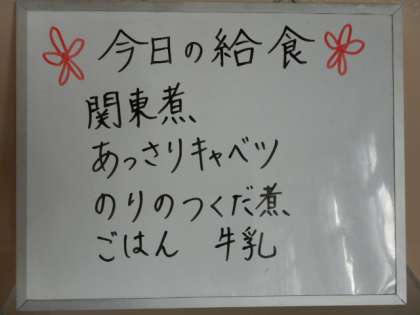 今日の給食
関東煮
あっさりキャベツ
のりのつくだ煮
ごはん 牛乳